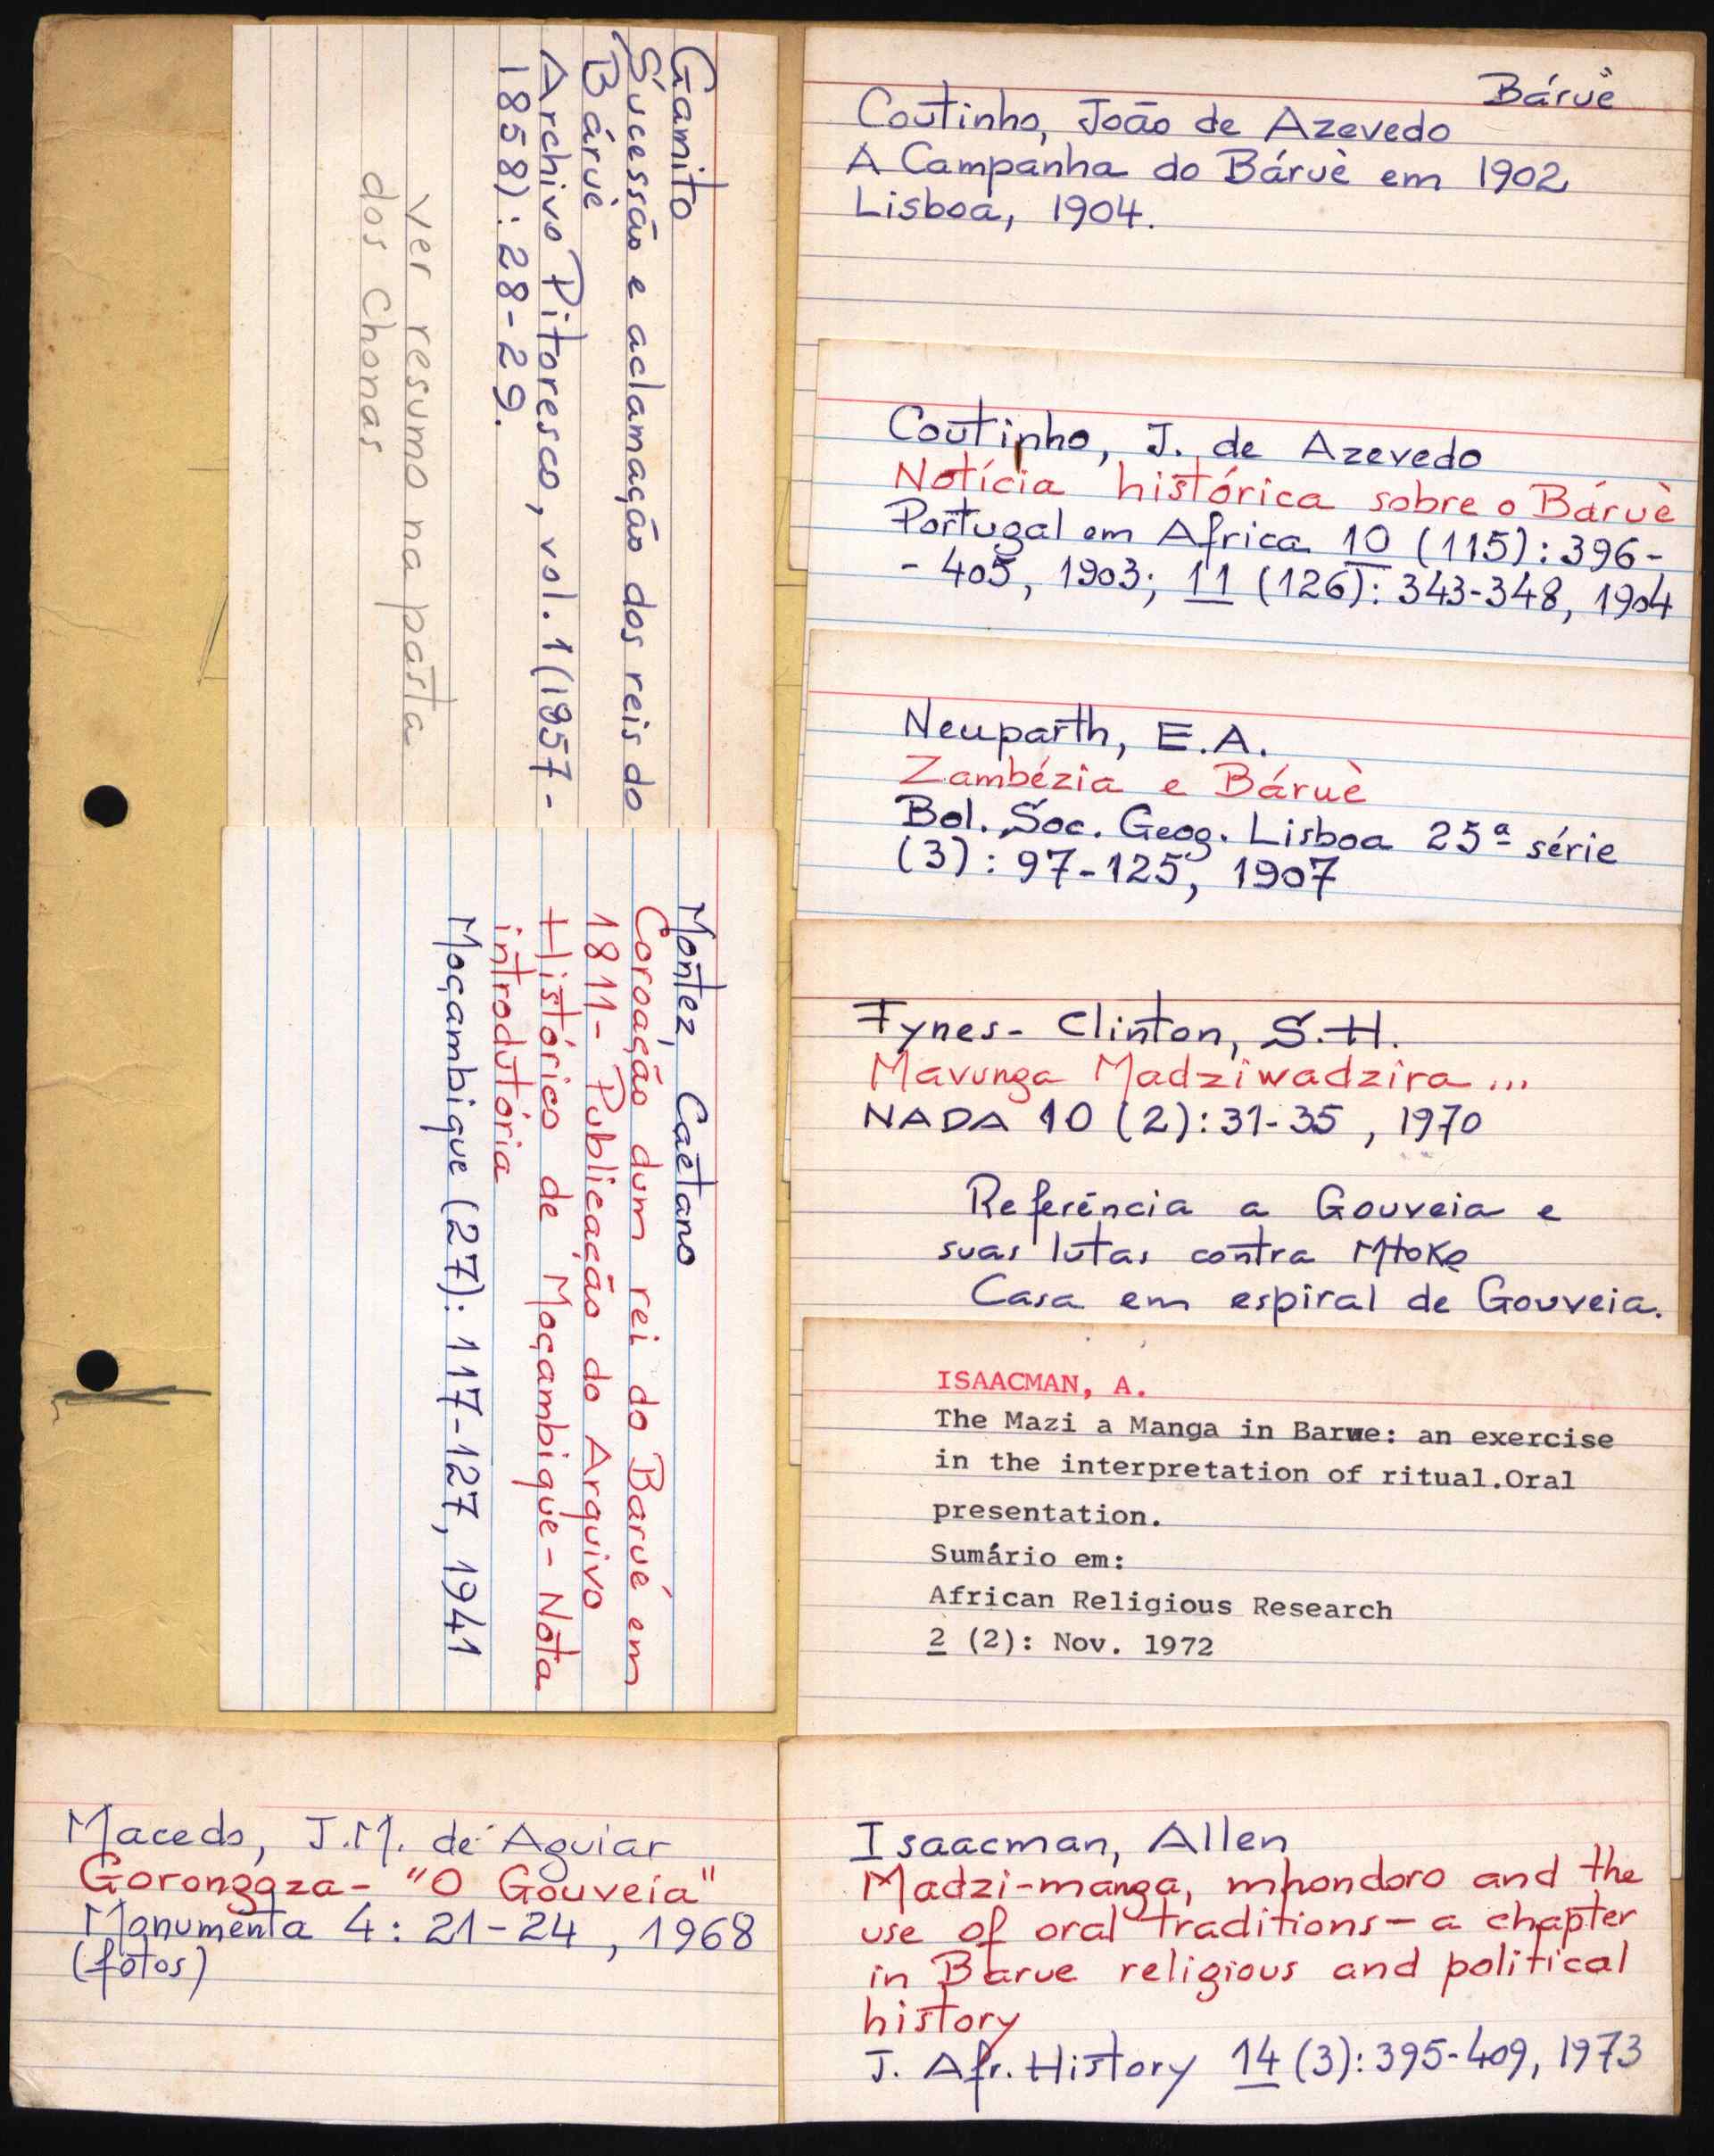 Báruè
Coutinho, João de Azevedo
A Campanha do Báruè em 1902
Lisboa, 1904.
Coutinho, J. de Azevedo
Notícia histórica sobre o Báruè
Portugal em Africa 10 (115): 396-
- 405, 1903; 11 (126): 343-348, 1904
Neuparth, E.A.
Zambézia e Báruè
Bol. Soc. Geog. Lisboa 25ª série
(3): 97-125, 1907
Fynes- Clinton, S.H.
Mavunga Madziwadzira...
NADA 10 (2): 31-35, 1970
Referência a Gouveia e
suas lutas contra Mtoko
Casa em espiral de Gouveia.
ISAACMAN, A.
The Mazi a Manga in Barwe: an exercise
in the interpretation of ritual.Oral
presentation.
Sumário em:
African Religious Research
2 (2): Nov. 1972
Isaacman, Allen
Madzi-manga, mhondoro and the
use of oral traditions- a chapter
in Barue religious and political
history
J. Afr. History 14 (3): 395-409, 1973
Gamito
Sucessão e aclamação dos reis do
Báruè
Archivo Pitoresco, vol. 1 (1957-
1858): 28-29.
Ver resumo na pasta
dos Chonas
Montez, Caetano
Coroação dum rei do Barué em
1811- Publicação do Arquivo
Histórico de Moçambique- Nota
introdutória
Moçambique (27): 117-127, 1941
Macedo, J.M. de Aguiar
Gorongoza- "O Gouveia"
Monumenta 4: 21-24, 1968
(fotos)